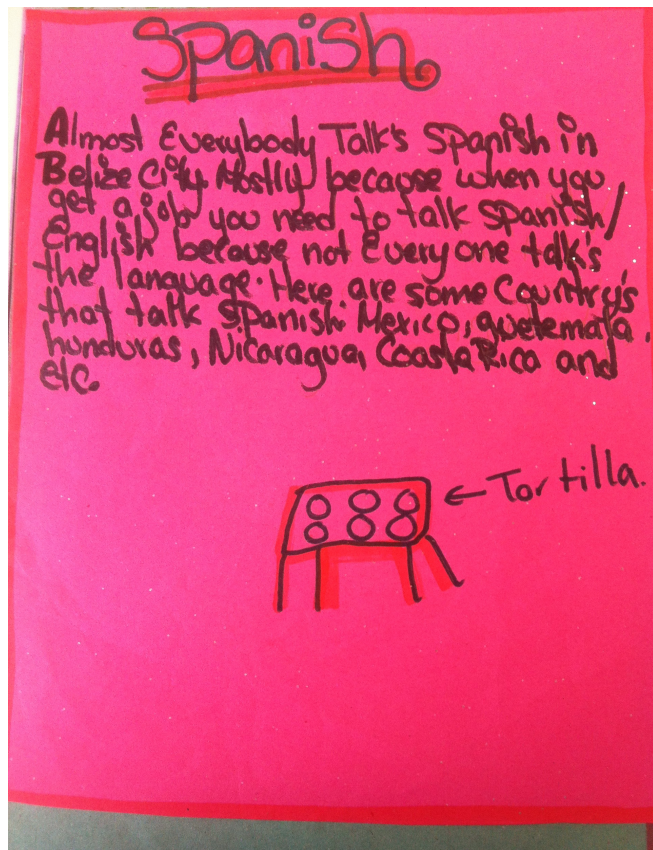 Spanish
Almost Everybody Talk's Spanish in
Belize City. Mostly because when you
get a job you need to talk Spanish/
English because not Everyone talk's
the language. Here are some Country's
that talk Spanish. Mexico, guetemala,
hunduras, Nicaragua, Coasta Rica and
etc.
← Tortilla.